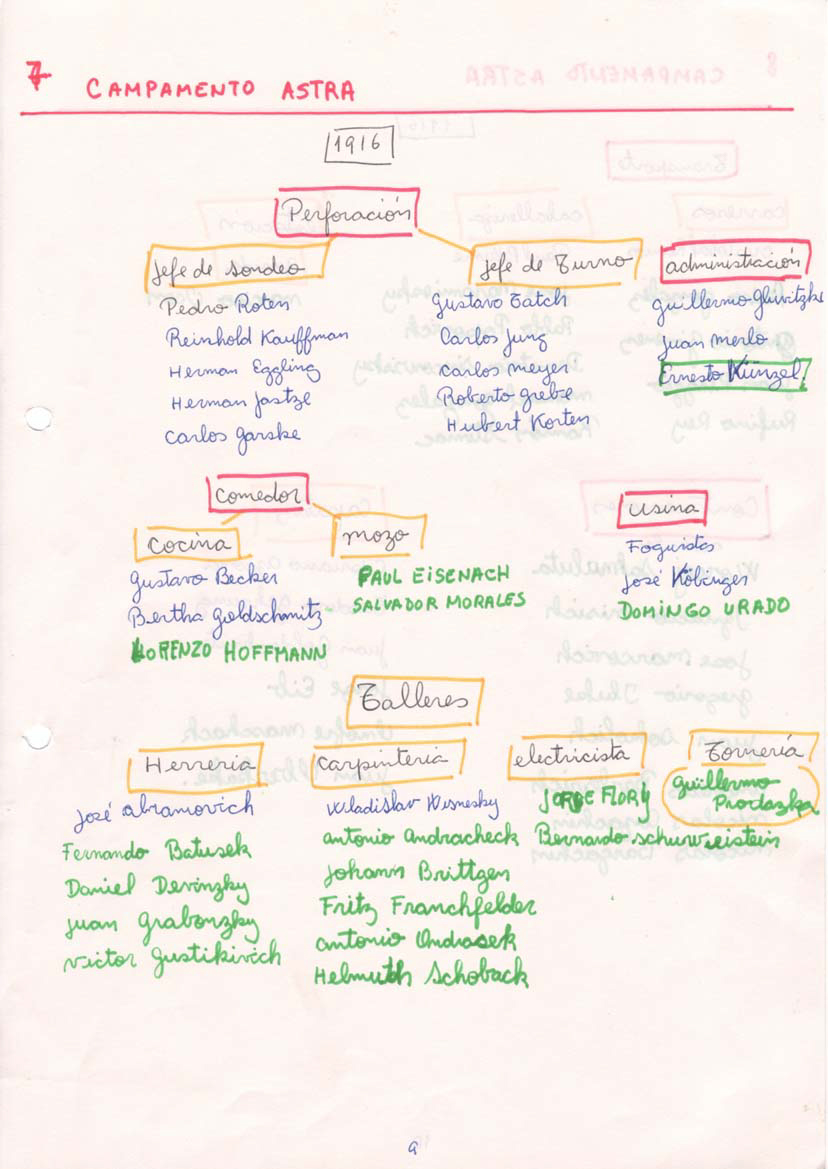 7 CAMPAMENTO ASTRA
1916
Perforación
Jefe de sondeo
Pedro Roten
Reinhold Kauffman
Herman Eggling
Herman Jastze
Carlos Garske
Jefe de Turno
Gustavo Tatch
Carlos Jung
Carlos Meyer
Roberto Grebe
Hubert Korten
administración
Guillermo Gluvitzke
Juan Merlo
Ernesto Künzel
Comedor
Cocina
Gustavo Becker
Bertha Goldschmitz
LORENZO HOFFMANN
mozo
PAUL EISENACH
SALVADOR MORALES
Usina
Foguistas
José Köbinger
DOMINGO URADO
Talleres
Herreria
José Abramovich
Fernando Batusek
Daniel Devinzky
Juan Grabonzky
Victor Gustikivich
Carpinteria
Wladislav Wisnesky
Antonio Andracheck
Johann Brittgen
Fritz Franchfelder
Antonio Ondrasek
Helmuth Schoback
electricista
JORGE FLORY
Bernardo Schurweistein
Tornería
Guillermo
Prodazka
a